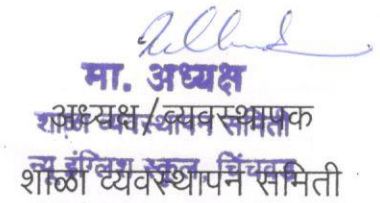 मा. अध्यक्ष
अध्यक्ष / व्यवस्थापक
शाळा व्यवस्थापन समिती
न्यू इंग्लिश स्कूल,
शाळा व्यवस्थापन समिती